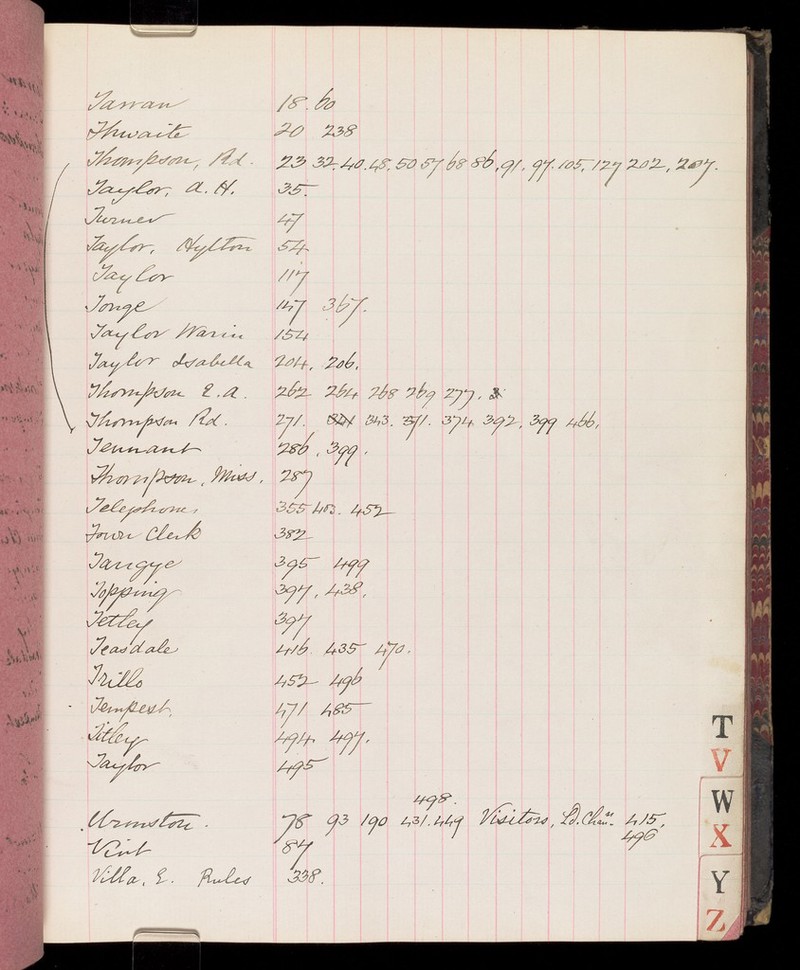 Tarran 18. 60
Thwaite 20 238
Thompson, Rd. 23 32. 40. 48. 50 57 68 86. 91. 97. 105. 127 202, 207.
Taylor, A. H. 35.
Turner 47
Taylor, Hylton 54
Taylor 117
Tonge 147 367.
Taylor Warin 154
Taylor Isabella 204, 206.
Thompson E. A. 262 264 268 269 277.
Thompson Rd. 271. 343. 371. 374 392. 399 466.
Tennant 286. 399.
Thompson, Miss. 287
Telephone 355 403. 452
Town Clerk 382
Tangye 395 499
Topping 397. 438.
Tetley 397
Teasdale 416. 435 470.
Trillo 452 496
Tempest. 471 485
Titley 494 497.
Taylor 495
498.
Urmston. 78 93 190 431. 449 Visitors, Ld. Chan. 415,
496
Vint 87
Villa. E. Rules 338.
T
V
W
X
Y
Z